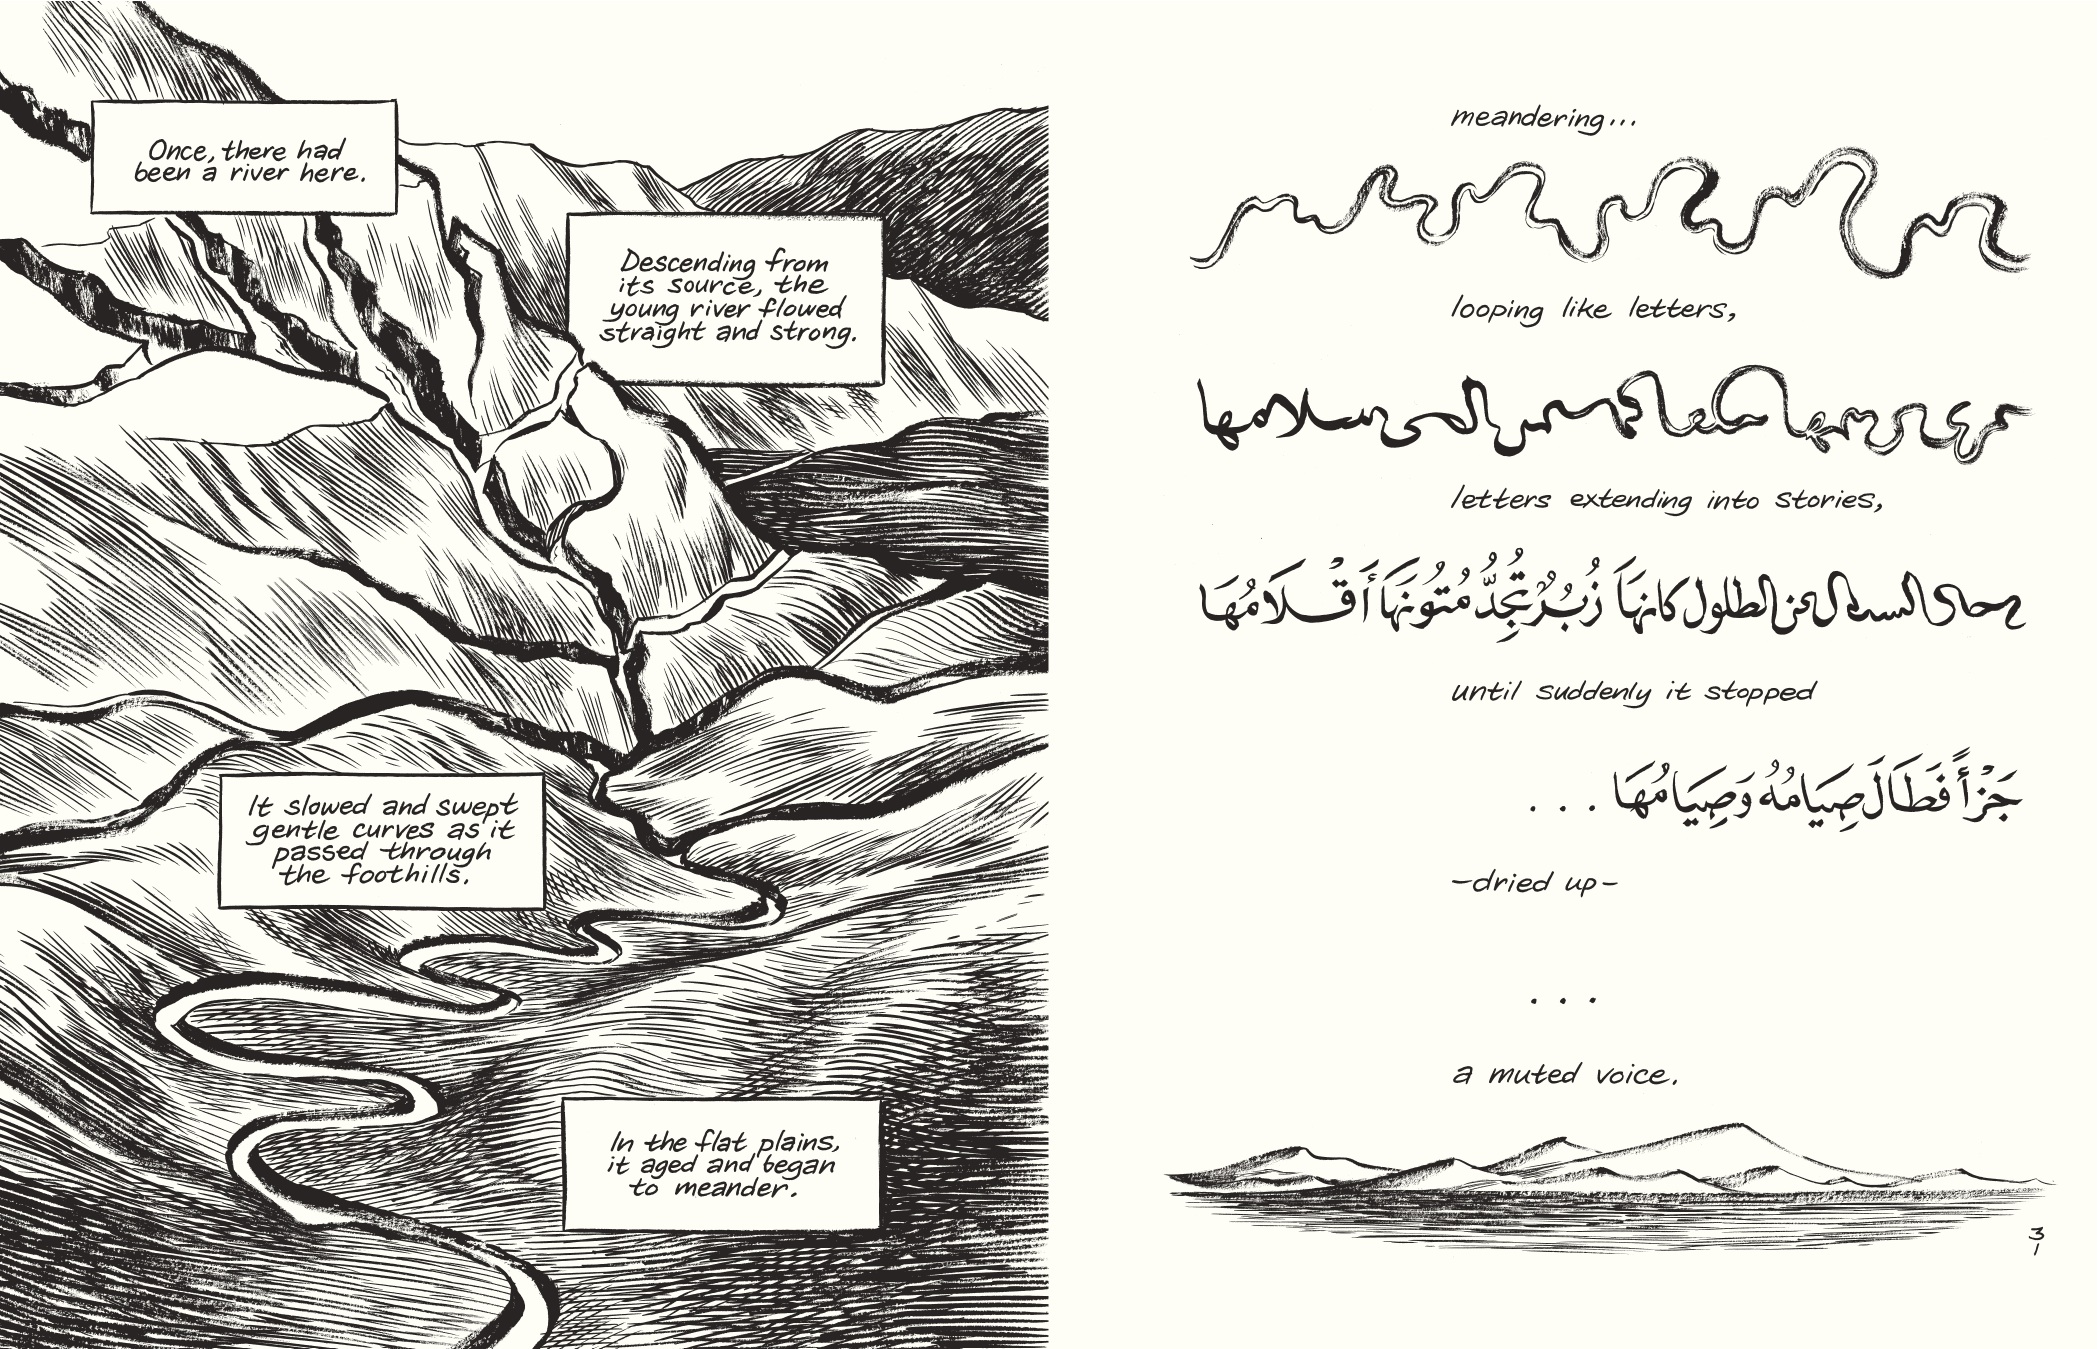 Once, there had
been a river here.
Descending from
its source, the
young river flowed
straight and strong.
It slowed and swept
gentle curves as it
passed through
the foothills.
In the flat plains,
it aged and began
to meander.
meandering...
looping like letters,
سلامها
letters extending into stories,
عن الطلول كانهَا زُبُرٌ تُجِدُّ مُتُونَهَا أَقْلَامُهَا
until suddenly it stopped
جَزْأً فَطَالَ صِيَامُهُ وَصِيَامُهَا . . .
-dried up-
. . .
a muted voice.
3
1